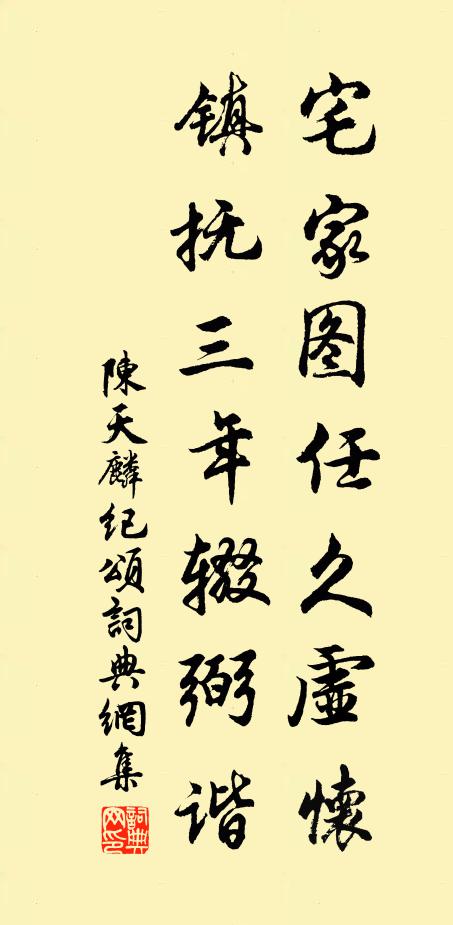 宅家图任久虚懷
镇抚三年辍弼谐
陳天麟纪颂詞典網集
詞典网印